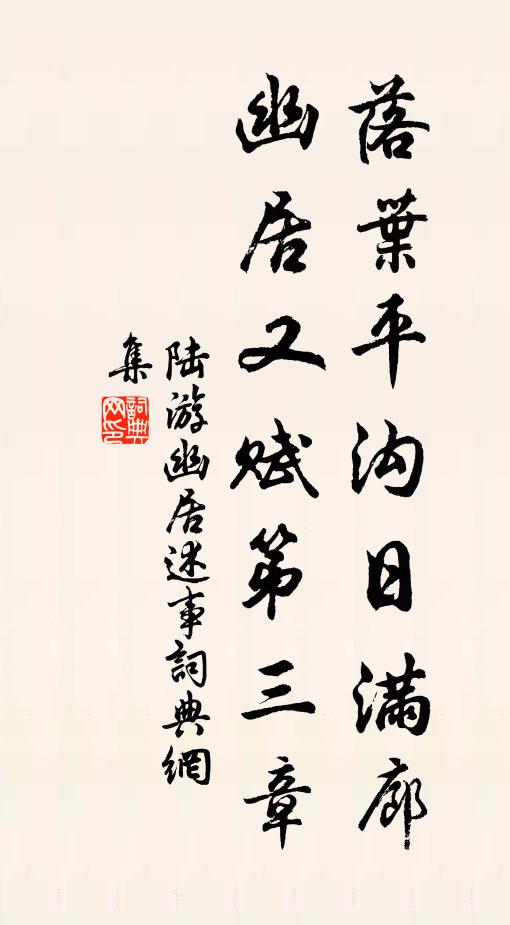 落葉平沟日滿廊
幽居又赋第三章
陆游幽居述事詞典網
集
詞典网印